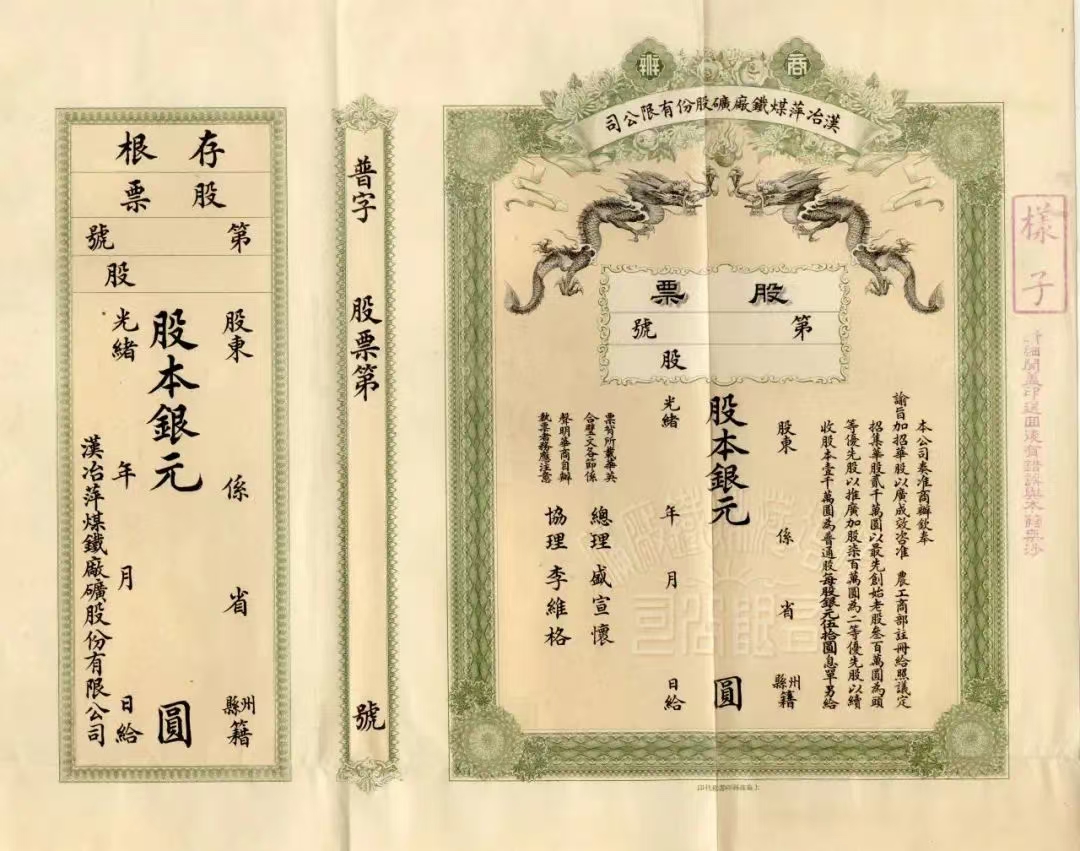 商辦
漢冶萍煤鐵廠礦股份有限公司
股票
第 號
股
本公司奏准商辦欽奉
諭旨加招華股以廣成效咨准 農工商部註冊給照議定
招集華股貳千萬圓以最先創始老股叁百萬圓為頭
等優先股以推廣加股柒百萬圓為二等優先股以續
收股本壹千萬圓為普通股每股銀元伍拾圓息單另給
股東 係 省 州縣籍
股本銀元 圓
光緒 年 月 日給
票背所載華英
合璧文各節係
聲明華商自辦
執票者務應注意
總理盛宣懷
協理李維格
樣子
普字 股票第 號
存根
股票
第 號
股
股東 係 省 州縣籍
股本銀元 圓
光緒 年 月 日給
漢冶萍煤鐵廠礦股份有限公司